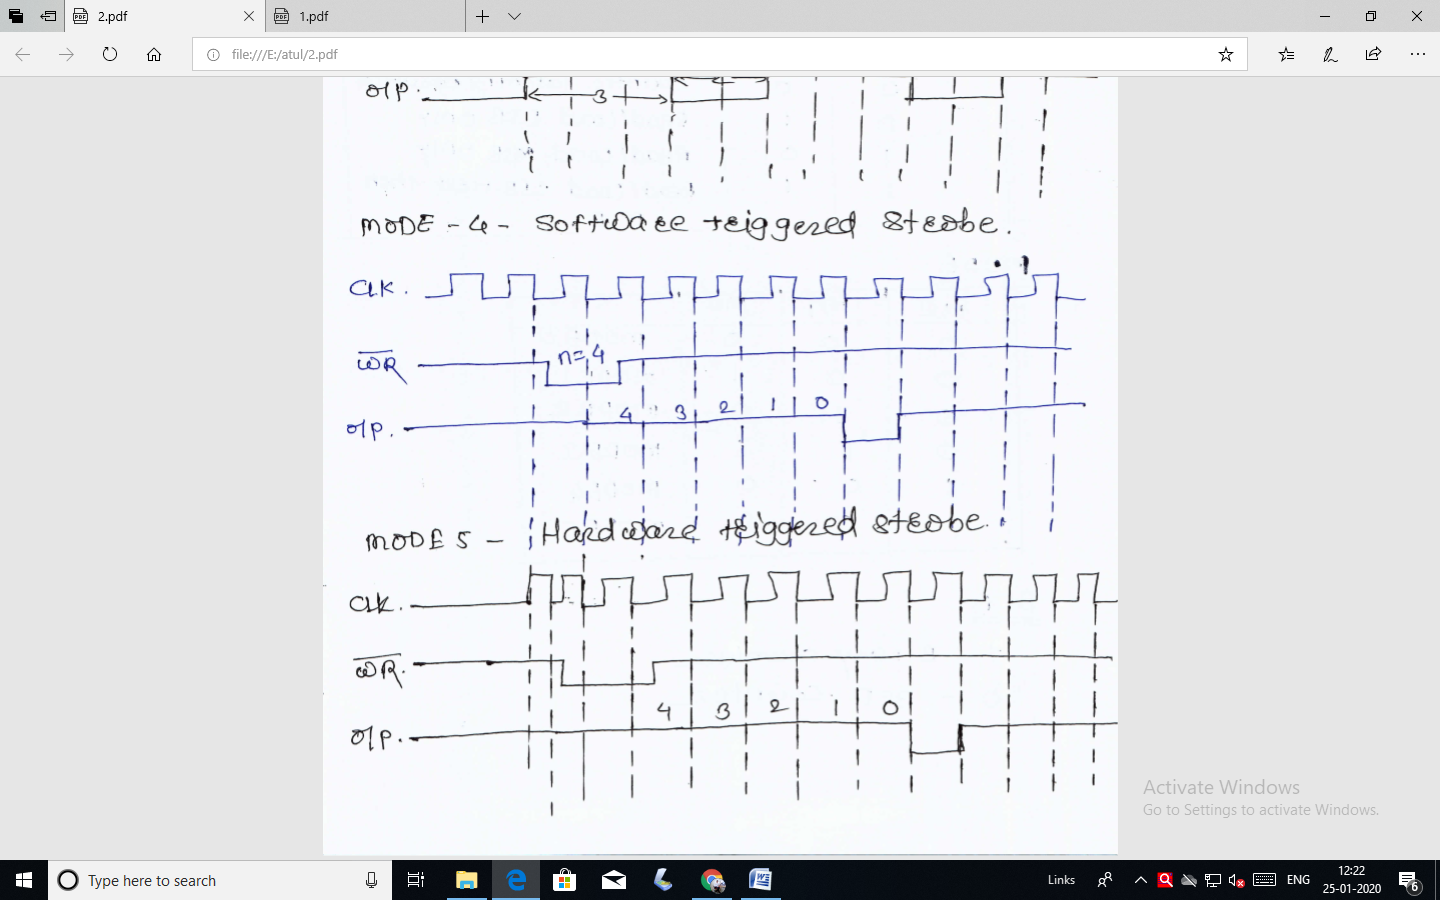 2.pdf
1.pdf
file:///E:/atul/2.pdf
O/P.
3
MODE - 4 - Software triggered Strobe.
CLK.
WR
n=4
4 3 2 1 0
O/P.
MODE 5 - Hardware triggered strobe.
CLK.
WR.
4 3 2 1 0
O/P.
Activate Windows
Go to Settings to activate Windows.
Type here to search
Links
ENG
12:22
25-01-2020
6